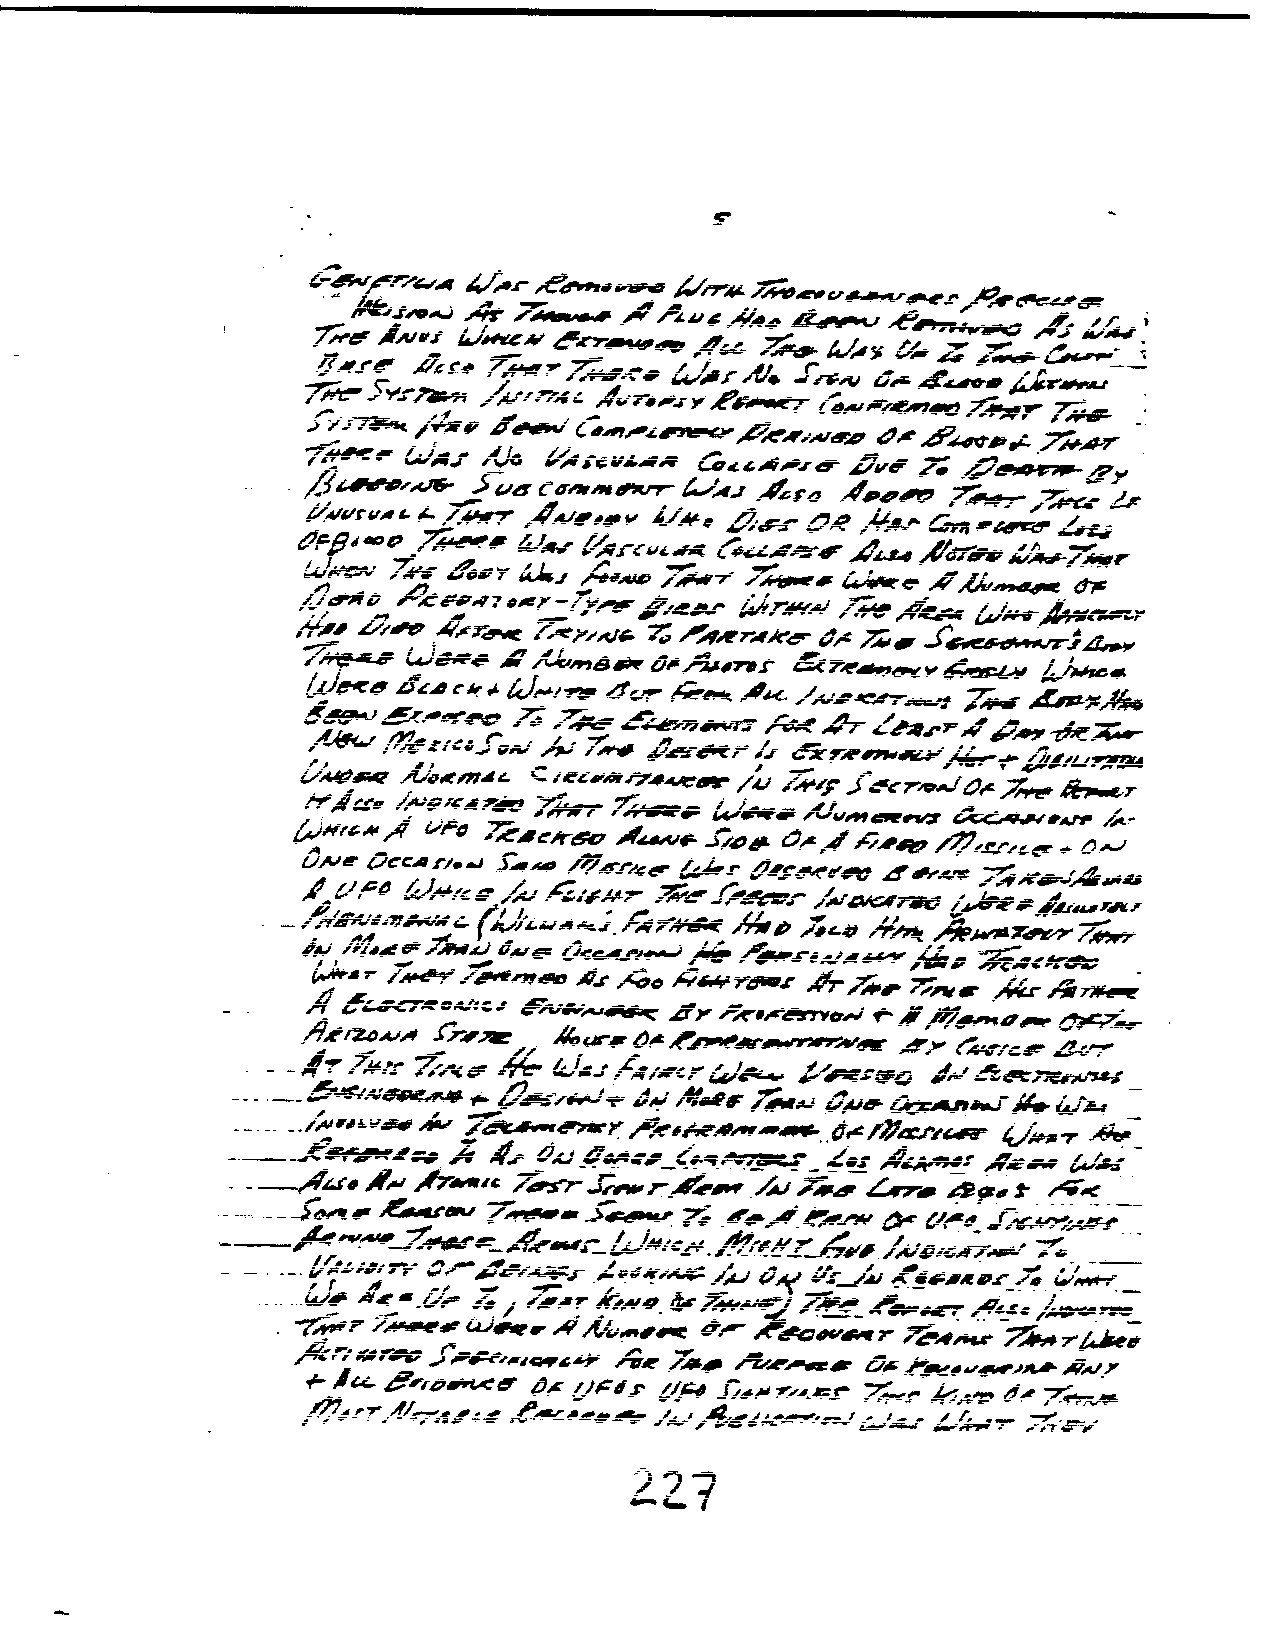 5
GENETILIA WAS REMOVED WITH
AS THOUGH A PLUG HAD BEEN REMOVED AS WAS
THE ANUS WHICH EXTENDED ALL THE WAY UP TO THE
ALSO THAT THERE WAS NO SIGN OF BLOOD WITHIN
THE SYSTEM INITIAL AUTOPSY REPORT CONFIRMED THAT THE
SYSTEM HAD BEEN COMPLETELY DRAINED OF BLOOD + THAT
THERE WAS NO VASCULAR COLLAPSE DUE TO DEATH BY
BLEEDING SUBCOMMENT WAS ALSO ADDED THAT THIS IS
UNUSUAL + THAT ANYBODY WHO DIES OR HAS COMPLETE LOSS
OF BLOOD THERE WAS VASCULAR COLLAPSE ALSO NOTED WAS THAT
WHEN THE BODY WAS FOUND THAT THERE WERE A NUMBER OF
DEAD PREDATORY-TYPE BIRDS WITHIN THE AREA WHO
HAD DIED AFTER TRYING TO PARTAKE OF THE SERGEANT'S BODY
THERE WERE A NUMBER OF PHOTOS EXTREMELY WHICH
WERE BLACK + WHITE BUT FROM ALL INDICATIONS THE BODY HAD
BEEN EXPOSED TO THE ELEMENTS FOR AT LEAST A DAY OR TWO
NEW MEXICO SON IN THE DESERT IS EXTREMELY HOT +
UNDER NORMAL CIRCUMSTANCES IN THIS SECTION OF THE REPORT
IT ALSO INDICATED THAT THERE WERE NUMEROUS OCCASIONS IN
WHICH A UFO TRACKED ALONG SIDE OF A FIRED MISSILE + ON
ONE OCCASION SAID MISSILE WAS OBSERVED BEING TAKEN ABOARD
A UFO WHILE IN FLIGHT THE SPEEDS INDICATED WERE ABSOLUTELY
PHENOMENAL (WILLIAM'S FATHER HAD TOLD HIM THAT
ON MORE THAN ONE OCCASION HE PERSONALLY HAD TRACKED
WHAT THEY TERMED AS FOO FIGHTERS AT THE TIME HIS FATHER
A ELECTRONICS ENGINEER BY PROFESSION + A MEMBER OF THE
ARIZONA STATE HOUSE OF REPRESENTATIVES BY CHOICE BUT
AT THIS TIME HE WAS FAIRLY WELL VERSED IN ELECTRONICS
ENGINEERING + DESIGN + ON MORE THAN ONE OCCASION HE WAS
INVOLVED IN TELEMETRY PROGRAMMING OF MISSILES WHAT HE
TO AS ON LOS ALAMOS AREA WAS
ALSO AN ATOMIC TEST AREA IN THE LATE FOR
SOME REASON THERE SEEMS TO BE A OF UFO SIGHTINGS
AROUND THESE AREAS WHICH MIGHT GIVE INDICATION TO
VALIDITY OF BEINGS LOOKING IN ON US IN REGARDS TO WHAT
WE ARE UP TO, THAT KIND OF THING) THE REPORT ALSO INDICATED
THAT THERE WERE A NUMBER OF RECOVERY TEAMS THAT WERE
ACTIVATED SPECIFICALLY FOR THE PURPOSE OF RECOVERING ANY
+ ALL EVIDENCE OF UFOS UFO SIGHTINGS THIS KIND OF THING
MOST NOTABLE RECORDED IN PUBLICATION WAS WHAT THEY
227